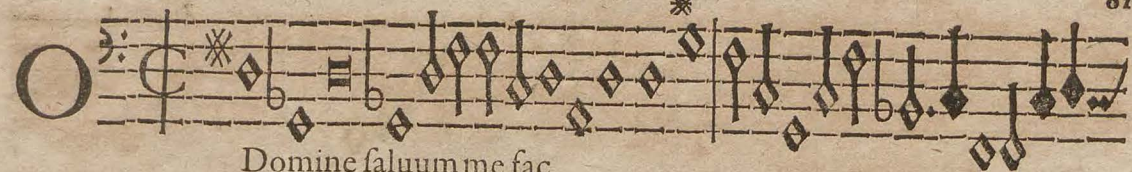 O
Domine ſaluum me fac